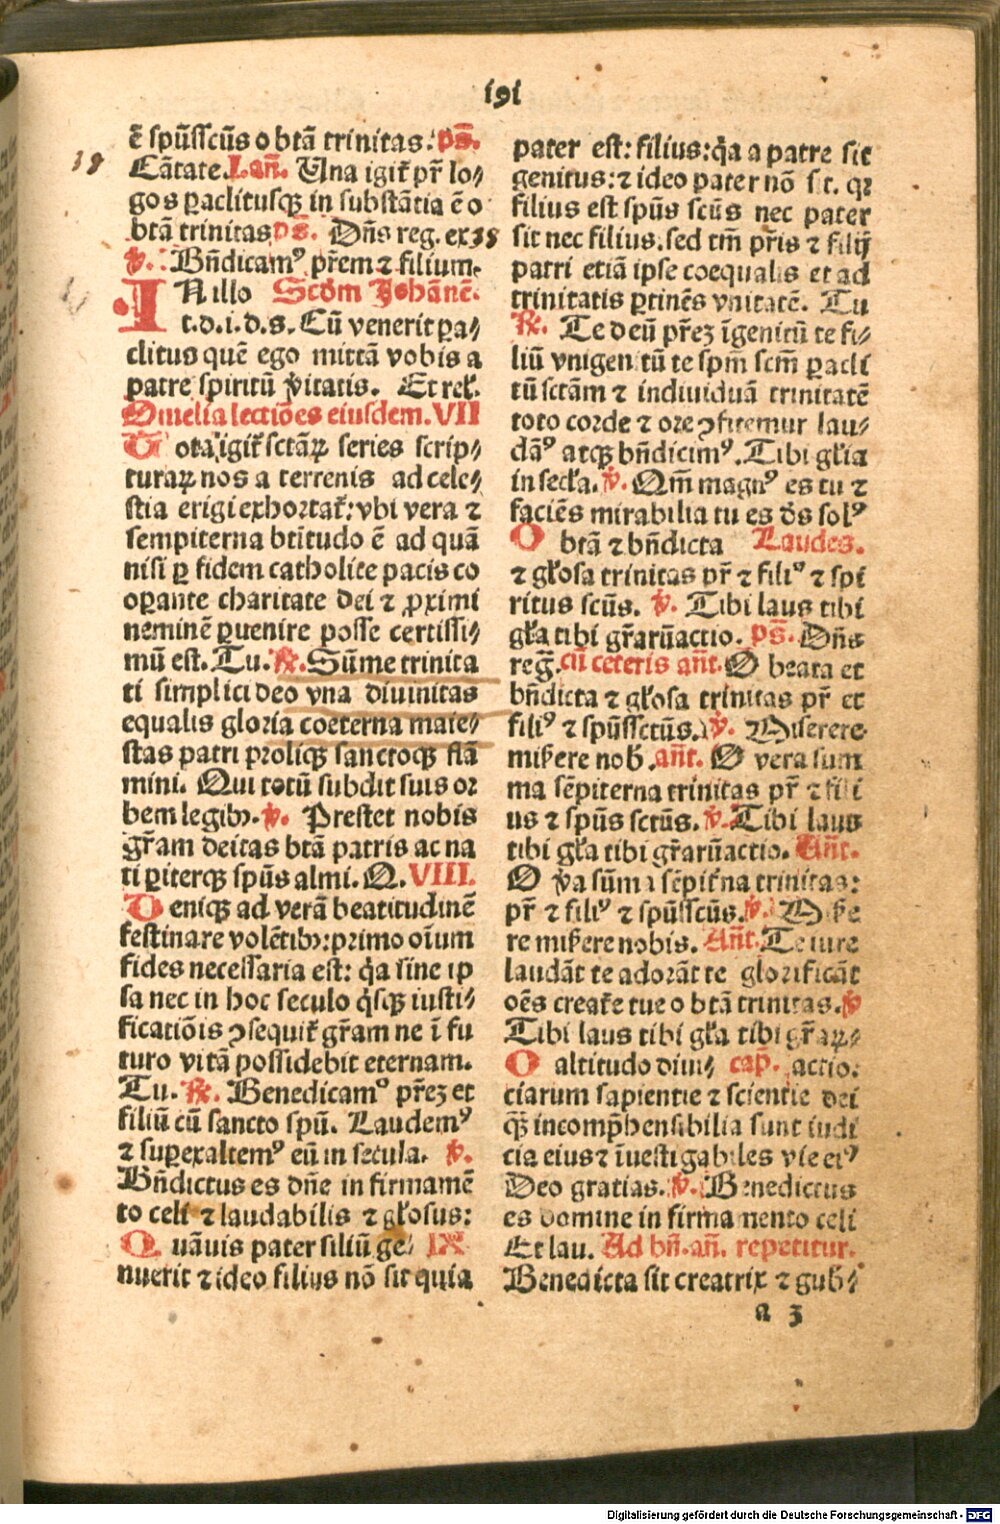 191
ē spūsscūs o btā trinitas. ps̄.
19
Cātate. Lan̄. Una igit᷑ pr̄ lo⸗
gos ꝑaclitusqꝫ in substātia ē o
btā trinitas ps̄. Dn̄s reg. ex 38
v̄. Bn̄dicamꝰ pr̄em ⁊ filium.
IN illo Scd̄m Johānē.
t.d.i.d.s. Cū venerit pa⸗
clitus quē ego mittā vobis a
patre spiritū v̄itatis. Et rel̄.
Omelia lectiōes eiusdem. VII
Tota igit᷑ sctāꝝ series scrip⸗
turaꝝ nos a terrenis ad cele⸗
stia erigi exhortat᷑: vbi vera ⁊
sempiterna bt̄itudo ē ad quā
nisi ꝑ fidem catholice pacis co
oꝑante charitate dei ⁊ ꝓximi
neminē ꝑuenire posse certissi⸗
mū est. Tu. ℟. Sūme trinita
ti simplici deo vna diuinitas
equalis gloria coeterna maie⸗
stas patri proliqꝫ sanctoqꝫ flā
mini. Qui totū subdit suis or
bem legibꝫ. v̄. Prestet nobis
gr̄am deitas btā patris ac na
ti ꝑiterqꝫ spūs almi. Q. VIII.
Deniqꝫ ad verā beatitudinē
festinare volētibꝫ: primo oīum
fides necessaria est: q̄a sine ip
sa nec in hoc seculo q̄sqꝫ iusti⸗
ficatiōis ↄsequit᷑ gr̄am ne ī fu
turo vitā possidebit eternam.
Tu. ℟. Benedicamꝰ pr̄eꝫ et
filiū cū sancto spū. Laudemꝰ
⁊ suꝑexaltemꝰ eū in secula. v̄.
Bn̄dictus es dn̄e in firmamē
to celi ⁊ laudabilis ⁊ gl̄osus:
Quāuis pater filiū ge⸗ IX
nuerit ⁊ ideo filius nō sit quia
pater est: filius: q̄a a patre sit
genitus: ⁊ ideo pater nō sit. qꝛ
filius est spūs scūs nec pater
sit nec filius. sed tm̄ pr̄is ⁊ filij
patri etiā ipse coequalis et ad
trinitatis ꝑtinēs vnitatē. Tu
℟. Te deū pr̄eꝫ īgenitū te fi⸗
liū vnigenitū te spm̄ scm̄ ꝑacli
tū sctām ⁊ indiuiduā trinitatē
toto corde ⁊ ore ↄfitemur lau⸗
dāꝰ atqꝫ bn̄dicimꝰ. Tibi gl̄ia
in secl̄a. v̄. Qm̄ magnꝰ es tu ⁊
faciēs mirabilia tu es d̄s solꝰ
O btā ⁊ bn̄dicta Laudes.
⁊ gl̄osa trinitas pr̄ ⁊ filiꝰ ⁊ spi
ritus scūs. v̄. Tibi laus tibi
gl̄a tibi gr̄aruāctio. ps̄. Dn̄s
reg̅. cū ceteris an̄t. O beata et
bn̄dicta ⁊ gl̄osa trinitas pr̄ et
filiꝰ ⁊ spūssctūs. v̄. Miserere
mis̄ere nob̄. an̄t. O vera sum
ma sēpiterna trinitas pr̄ ⁊ fili
us ⁊ spūs sctūs. v̄. Tibi laus
tibi gl̄a tibi gr̄aruāctio. An̄t.
O v̄a sūma sēpit᷑na trinitas:
pr̄ ⁊ filiꝰ ⁊ spūsscūs. v̄. Mis̄e
re mis̄ere nobis. An̄t. Te iure
laudāt te adorāt te glorificāt
oēs creat᷑e tue o btā trinitas. v̄
Tibi laus tibi gl̄a tibi gr̄aꝝ⸗
O altitudo diui⸗ cap̄. actio.
ciarum sapientie ⁊ scientie dei
qꝫ̄ incomp̄hensibilia sunt iudi
cia eius ⁊ īuestigabiles vie eiꝰ
Deo gratias. v̄. Benedictus
es domine in firmamento celi
Et lau. Ad bn̄. an̄. repetitur.
Benedicta sit creatrix ⁊ gub̄⸗
a 3
Digitalisierung gefördert durch die Deutsche Forschungsgemeinschaft - DFG